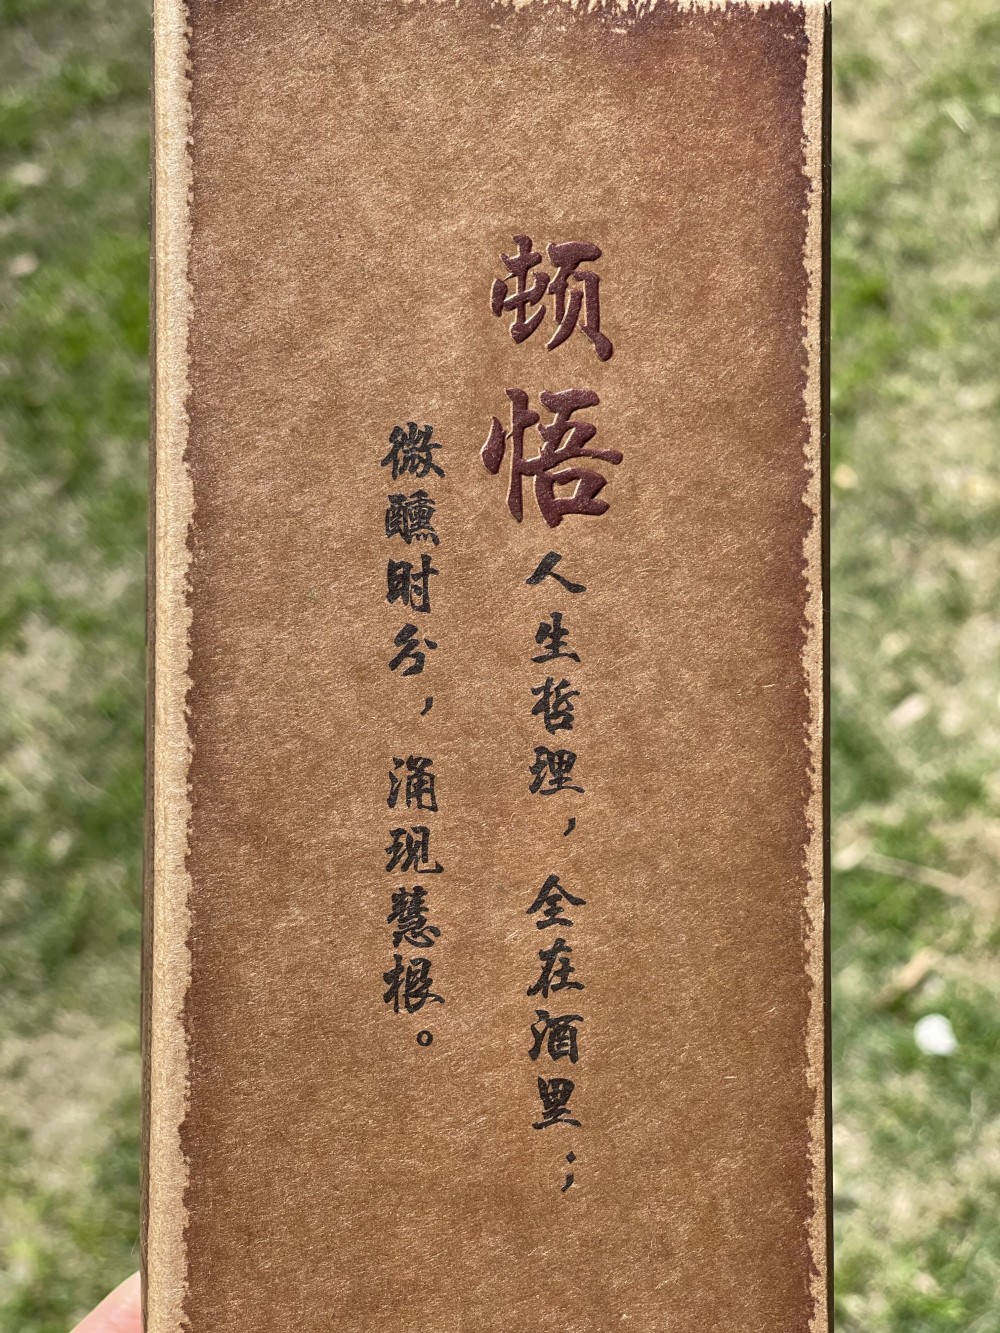 顿悟
人生哲理，全在酒里；
微醺时分，涌现慧根。